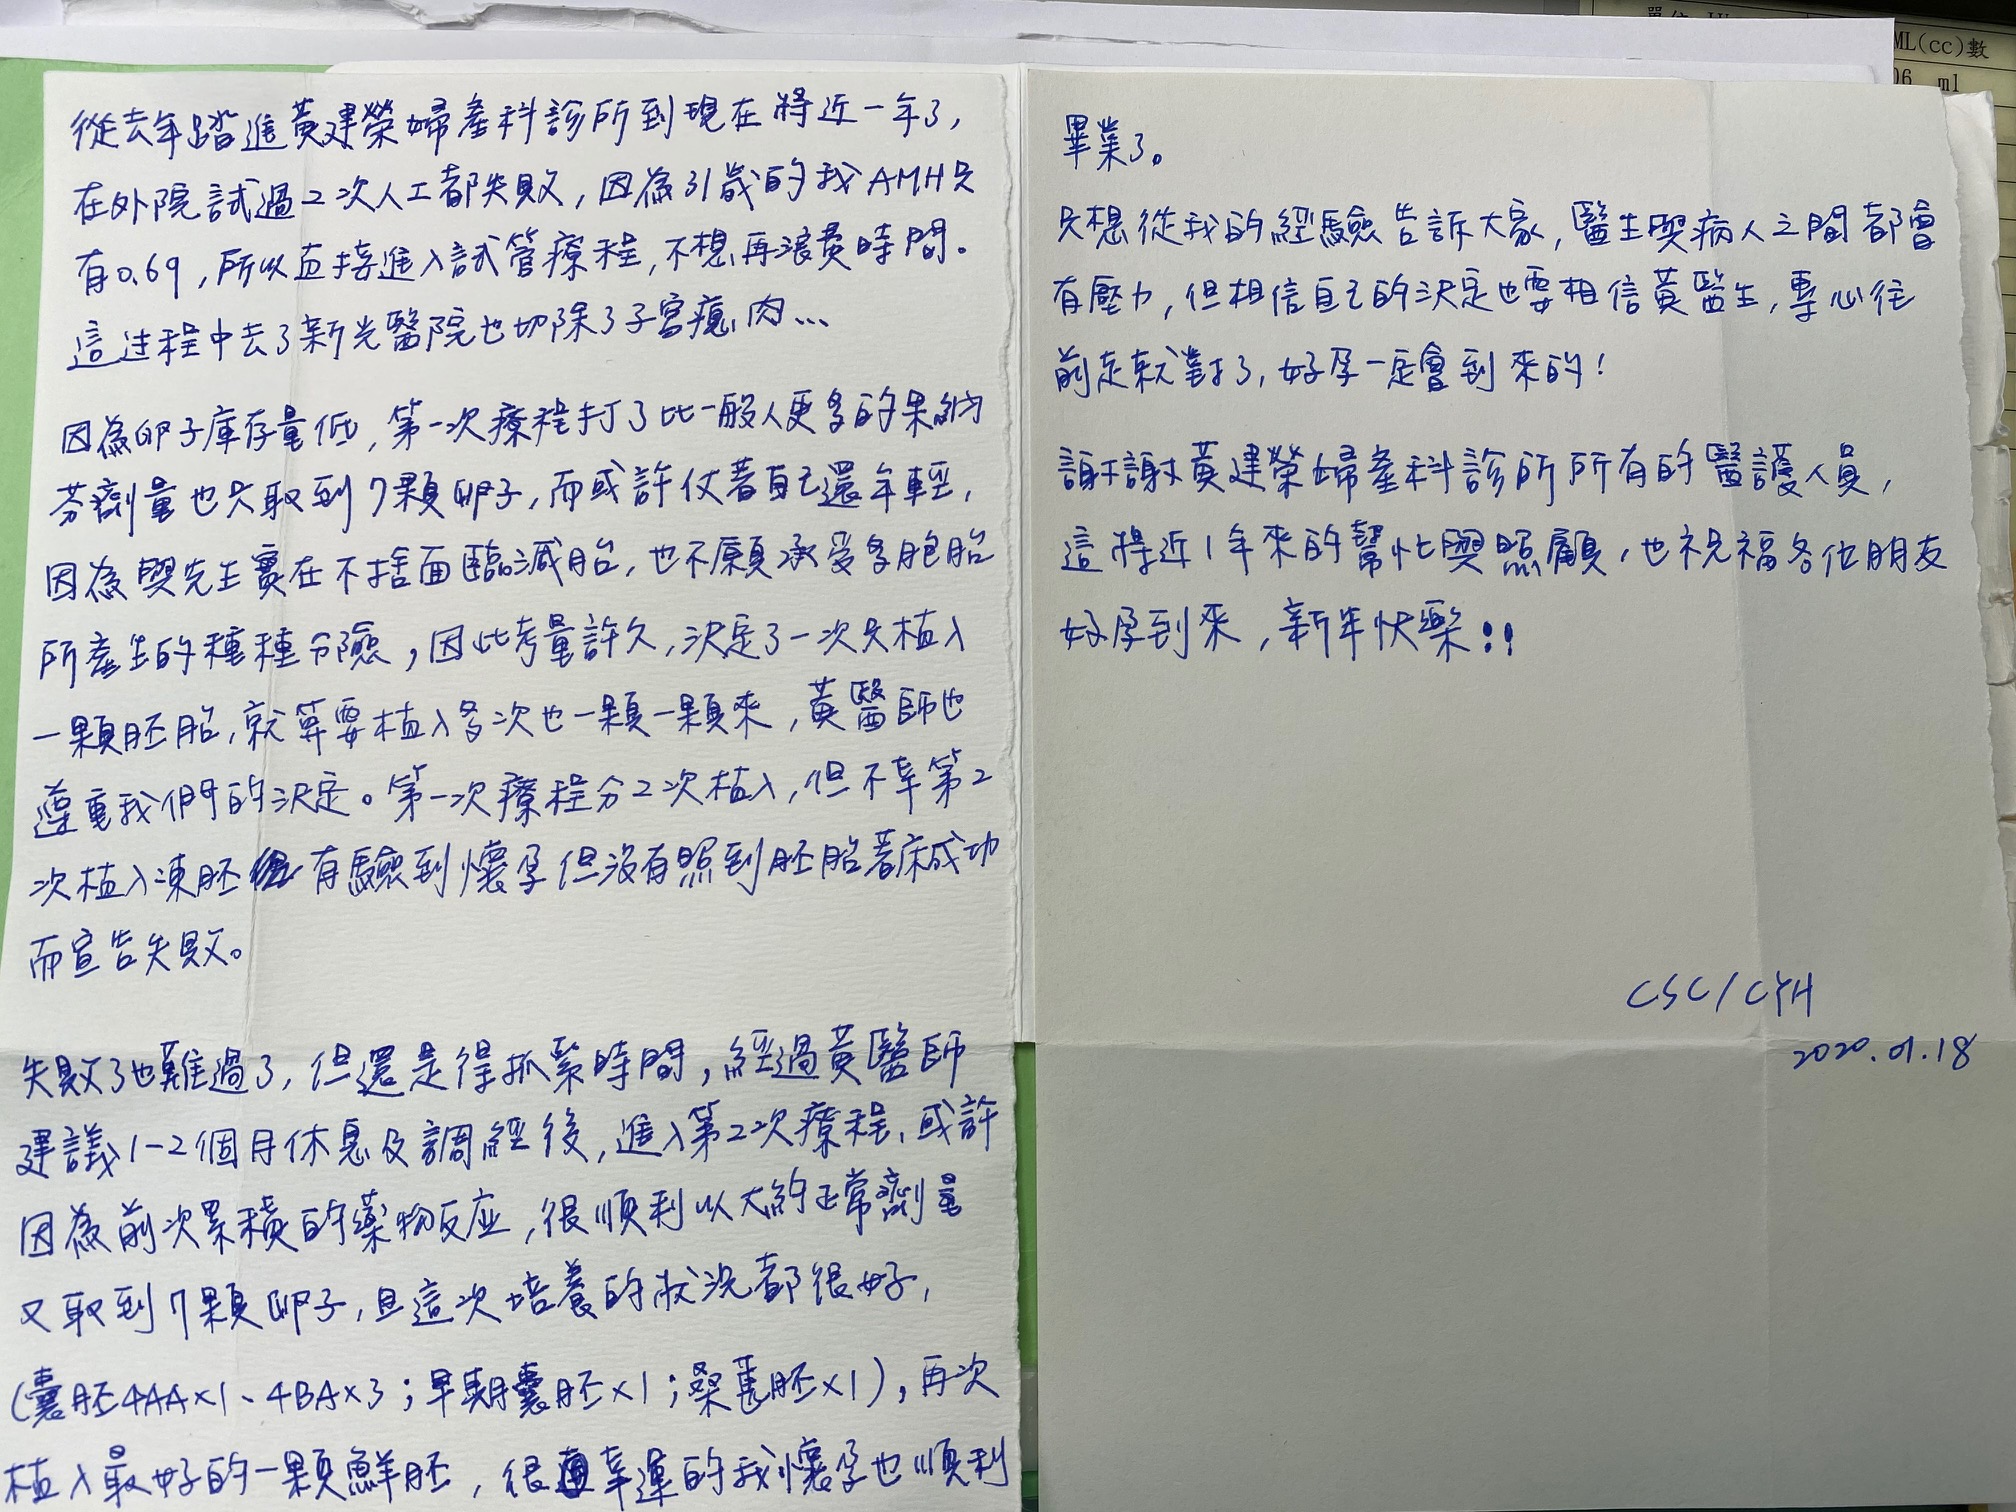 從去年踏進黃建榮婦產科診所到現在將近一年了,
在外院試過2次人工都失敗,因為31歲的我AMH只
有0.69,所以直接進入試管療程,不想再浪費時間。
這过程中去了新光醫院也切除了子宮瘜肉...
因為卵子庫存量低,第一次療程打了比一般人更多的果納
芬劑量也只取到7顆卵子,而或許仗著自己還年輕,
因為與先生實在不捨面臨減胎,也不願承受多胞胎
所產生的種種風險,因此考量許久,決定了一次只植入
一顆胚胎,就算要植入多次也一顆一顆來,黃醫師也
尊重我們的決定。第一次療程分2次植入,但不幸第2
次植入凍胚有驗到懷孕但沒有照到胚胎著床成功
而宣告失敗。
失敗了也難過了,但還是得抓緊時間,經過黃醫師
建議1-2個月休息及調經後,進入第2次療程,或許
因為前次累積的藥物反应,很順利以大約正常劑量
又取到7顆卵子,且這次培養的狀況都很好,
(囊胚4AA×1、4BA×3;早期囊胚×1;桑葚胚×1),再次
植入最好的一顆鮮胚,很幸運的我懷孕也順利
畢業了。
只想從我的經驗告訴大家,醫生與病人之間都會
有壓力,但相信自己的決定也要相信黃醫生,專心往
前走就對了,好孕一定會到來的!
謝謝黃建榮婦產科診所所有的醫護人員,
這將近1年來的幫忙與照顧,也祝福各位朋友
好孕到來,新年快樂!!
CSC/CYH
2020.01.18
ML(cc)數
06 ml